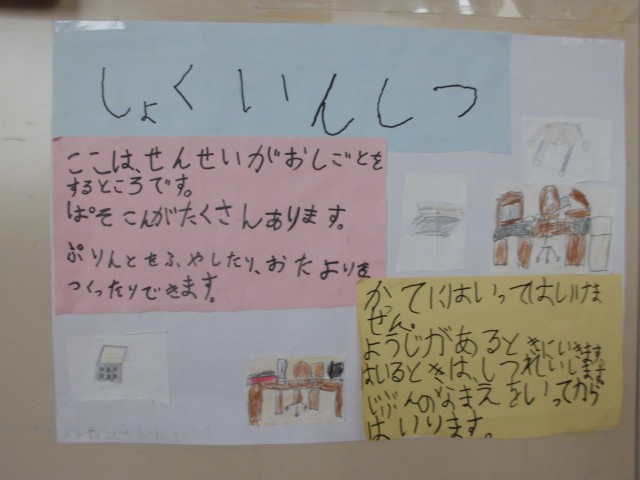 しょくいんしつ
ここは、せんせいがおしごとを
するところです。
ぱそこんがたくさんあります。
ぷりんとをふやしたり、おたよりを
つくったりできます。
かってにはいってはいけま
せん。
ようじがあるときにいきます。
はいるときは、しつれいします。
じぶんのなまえをいってから
はいります。